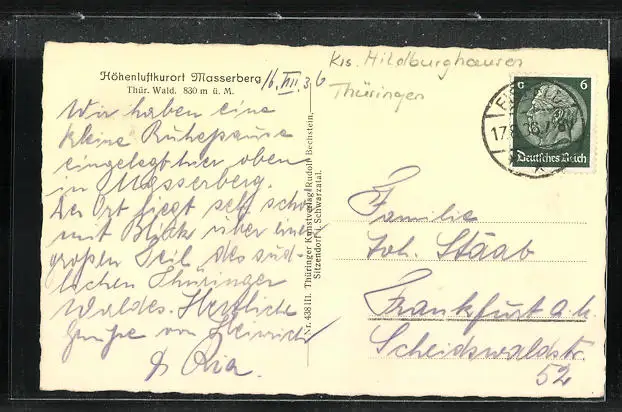 Höhenluftkurort Masserberg
Thür. Wald. 830 m ü. M.
16.VIII.36
Wir haben eine
kleine Ruhepause
eingelegt hier oben
in Masserberg.
Der Ort liegt sehr schön
mit Blick über einen
großen Teil des süd-
lichen Thüringer
Waldes. Herzliche
Grüße von Heinrich
& Ria.
Nr. 438 III. Thüringer Kunstverlag Rudolf Bechstein,
Sitzendorf i. Schwarzatal.
Krs. Hildburghausen
Thüringen
6 6
Deutsches Reich
17.8.36
Familie
Joh. Staab
Frankfurt a. M.
Scheidswaldstr.
52